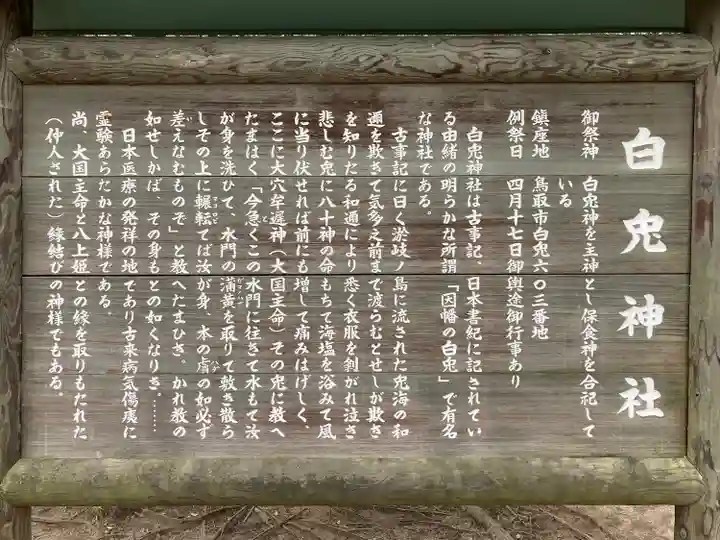 白兎神社
御祭神　白兎神を主神とし保食神を合祀して
いる
鎮座地　鳥取市白兎六〇三番地
例祭日　四月十七日御輿途御行事あり
白兎神社は古事記、日本書紀に記されてい
る由緒の明らかな所謂「因幡の白兎」で有名
な神社である。
古事記に曰く淤岐ノ島に流された兎海の和
邇を欺きて気多之前まで渡らむとせしが欺き
を知りたる和邇により悉く衣服を剥がれ泣き
悲しむ兎に八十神の命もちて海塩を浴みて風
に当り伏せれば前にも増して痛みはげしく、
ここに大穴牟遅神（大国主命）その兎に教へ
たまはく「今急くこの水門に往きて水もて汝
が身を洗ひて、水門の蒲黄を取りて敷き散ら
しその上に輾転てば汝が身、本の膚の如必ず
差えなむものぞ」と教へたまひき、かれ教の
如せしかば、その身もとの如くなりき。……
日本医療の発祥の地であり古来病気傷痍に
霊験あらたかな神様である。
尚、大国主命と八上姫との縁を取りもたれた
（仲人された）縁結びの神様でもある。